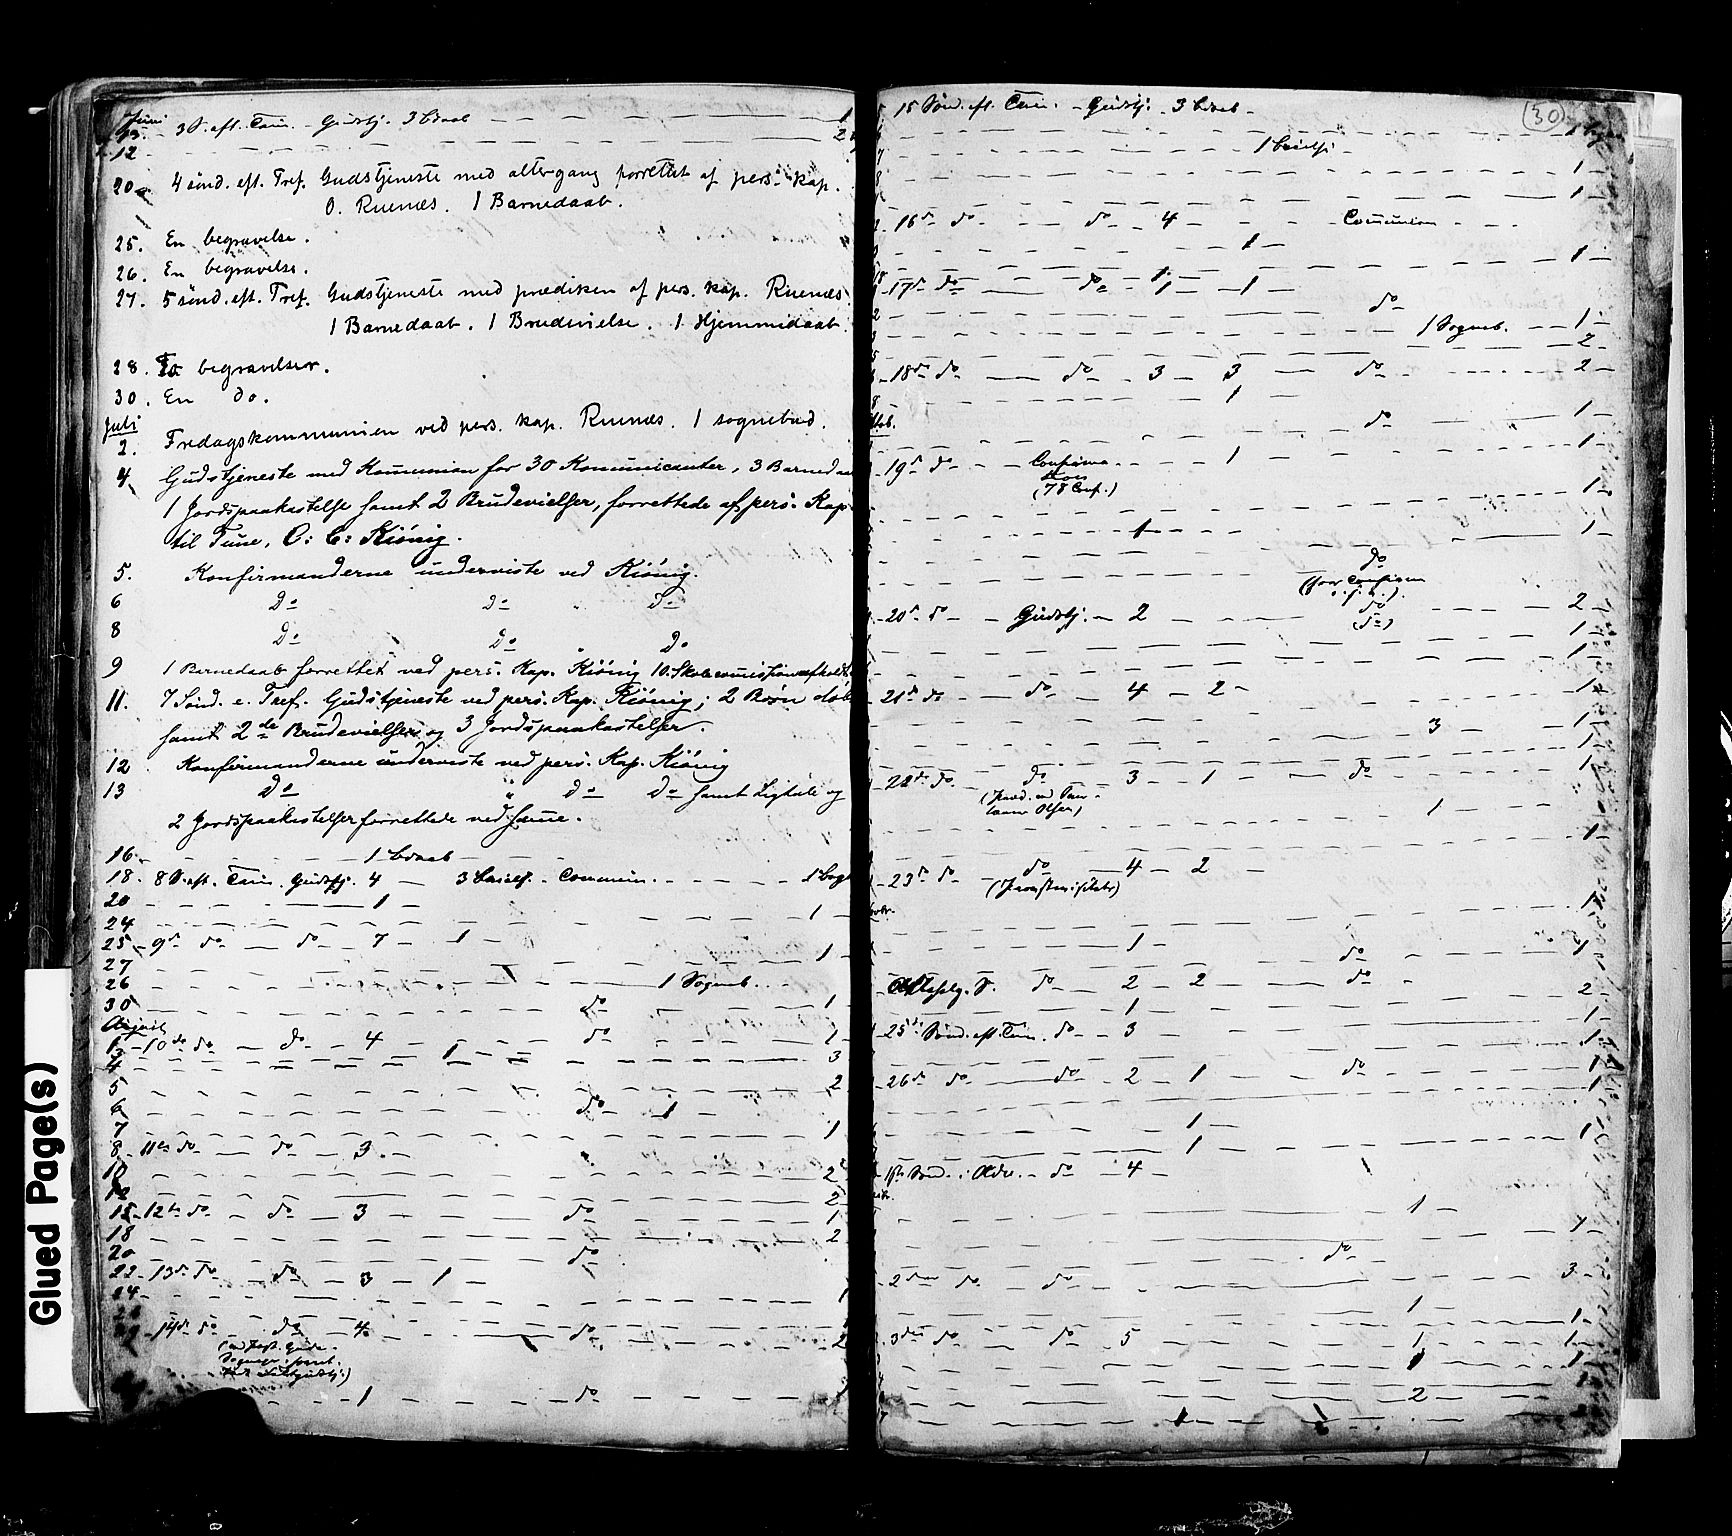 Juni
13. 3 S. eft. Trin. - Gudstj. 3 bdaab - 1
12 - 2
20. 4 sönd. eft. Tref. Gudstjeneste med altergang forrettet af pers. kap.
O. Ruenæs. 1 Barnedaab.
25. En begravelse.
26. En begravelse.
27. 5 sönd. eft. Tref. Gudstjeneste med prædiken af pers. kap. Ruenæs
1 Barnedaab. 1 Brudevielse. 1 Hjemmedaab
28. To begravelser.
30. En do.
Juli
2. Fredagskommunion ved pers. kap. Ruenæs. 1 sognebud.
4 Gudstjeneste med Kommunion for 30 Komunicanter, 3 Barned
1 Jordspaakastelse samt 2 Brudevielser, forrettede af pers. Kap
til Tune, O: C: Kiönig.
5. Konfirmanderne underviste ved Kiönig.
6 Do Do Do
8 Do Do Do
9 1 Barnedaab forrettet ved pers. Kap. Kiönig 10. Skolecomissionen afholdt
11. 7 Sönd. e. Tref. Gudstjeneste ved pers. Kap. Kiönig; 2 Börn döb
samt 2de Brudevielser og 3 Jordspaakastelser.
12 Konfirmanderne underviste ved pers. Kap. Kiönig
13 Do " Do Do samt Ligtale og
2 Jordspaakastelser forrettede ved samme.
16. - 1 bdaab
18. 8 S. eft. Trin. Gudstj. 4 - 3 bviels. - Commun. - 1 begr
20 - 1 -
24 - 1 -
25 - 9de do - do - 7 - 1 -
27 - 1 -
26 - 1 Sogneb.
30 - do - 1
August
1 - 10de do - do - 4 - do - 1
3 - 1 - 3
4
5 - 2
6 - do - 1
7 - 1
8 - 11te do - do - 3 -
10 - 2
12 - 2
15 - 12te do - do - 3 - do - 1
18 - 2
20 - do
22 - 13de do - do - 3 - 1 -
24 - 1
- 14de do - do - 4 - do - 2
- 1 - do -
30
15 Sönd. eft. Trin. - Gudstj. 3 bdaab -
1 begr
1 bvielse -
- 1 -
- 1 -
16de do - do - 4 - Communion - -
- 1 -
- 1 -
17de do - do - 1 - 1 -
do
1 Sogneb. - 1 -
2 -
18de do - do - 3 - 3 - do - 2 -
- 1 -
do - 1
- 1 -
19de do - Confirma- - 1 -
tion
(78 Conf.)
- 1 -
- 1 - 1 -
do
(for Confirm
20de do - Gudstj. - 2 - do - 2 -
(do)
- 1 -
- 1 -
21de do - do - 4 - 2 - 1 -
3 - 1 -
- 1 -
22de do - do - 3 - 1 - do - 1
Olsen)
- 1 -
- 1 -
23de do - do - 4 - 2 -
- 1
- 1 - do - 1
Allehelg. S. do - 2 - 2 - do - 2 -
- 1 -
25de Sönd. eft. Trin. do - 3 - 1 -
26de do - do - 2 - 1 - do - 1
- 1
- 1 -
- 1 - 1
1ste Sönd. i Adv. - do - 4 -
- 1 - 1
do -
2den do - do - 3 -
- 1 - 1 -
3die do - do - 5 - 1 - 1 -
- 1 - 1
- 2 -
- 1 -
Glued Page(s)